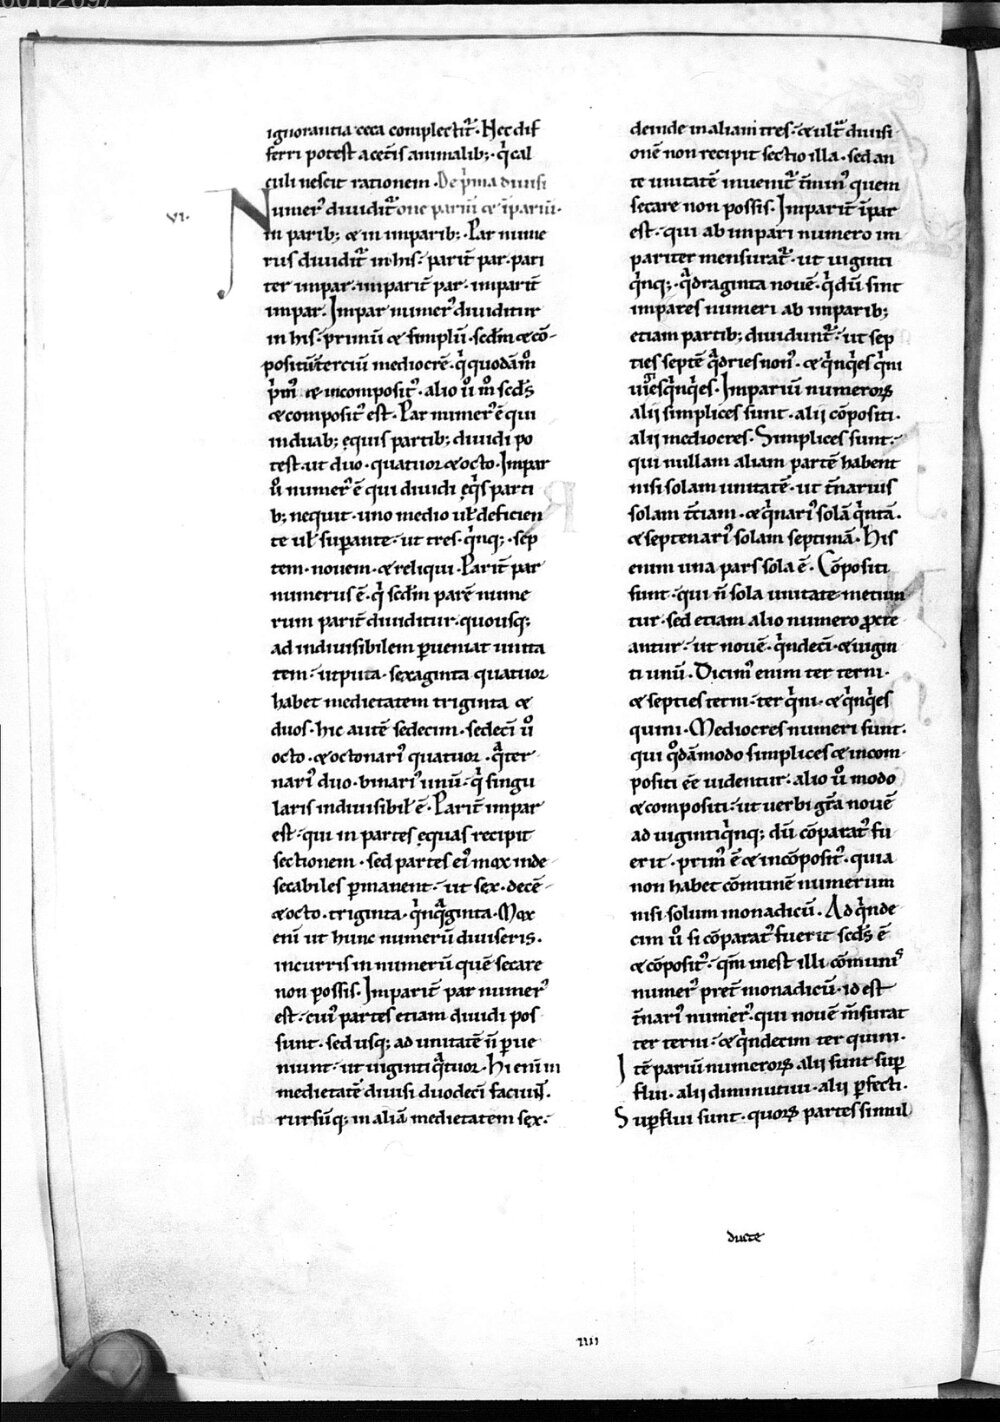 ignorantia ceca complectit᷑. Nec dif
ferri potest a cet̄is animalib;. q̇ cal
culi nescit rationem. De ṗma diuisi
VI.
Numer᷒ diuidit᷑ one pariū & īpariū.
in parib; & in imparib;. Par nume
rus diuidit᷑ in his. parit̄ par. pari
ter impar. imparit̄ par. imparit̄
impar. Impar numer᷒ diuiditur
in his. primū & simplū. scd̄m & cō
positū. terciū mediocrē. q̇ quodāṁ
ṗm᷒ & incomposit᷒. alio ů ṁ scd̄s
& composit᷒ est. Par numer᷒ ē qui
in duab; ęquis partib; diuidi po
test. ut duo. quatuor & octo. Impar
ů numer᷒ ē qui diuidi ęq̇s parti
b; nequit. uno medio uł deficien
te uł suꝑante. ut tres. q̇nq;. sep
tem. nouem. & reliqui. Parit̄ par
numerus ē. q̇ scd̄m parē nume
rum parit̄ diuiditur. quousq;
ad indiuisibilem ꝑueniat unita
tem. utputa. sexaginta quatuor
habet medietatem triginta &
duos. hic autē sedecim. sedecī ů
octo. & octonari᷒ quatuor. q̇ter
nari᷒ duo. binari᷒ unū. q̇ singu
laris indiuisibił ē. Parit̄ impar
est. qui in partes ęquas recipit
sectionem. sed partes ei᷒ mox inde
secabiles ꝑmanent. ut sex. decē
& octo. triginta. q̇nq̈ginta. Mox
enī ut hunc numerū diuiseris.
incurris in numerū quē secare
non possis. Imparit̄ par numer᷒
est. cui᷒ partes etiam diuidi pos
sunt. sed usq; ad unitatē n̄ ꝑue
niunt. ut uiginti q̈tuor. Hi enim in
medietatē diuisi duodecī faciunt.
rursūq; in aliā medietatem sex.
deinde in aliam tres. & ult᷑ diuisi
onē non recipit sectio illa. sed an
te unitatē inuenit᷑ t̄min᷒ quem
secare non possis. Imparit̄ īpar
est. qui ab impari numero im
pariter mensurat᷑. ut uiginti
q̇nq;. q̈draginta nouē. q̇ dū sint
impares numeri ab imparib;
etiam partib; diuidunt᷑. ut sep
ties septē q̈dries non᷒. & q̇nq̇es q̇ni
uīesq̇nq̇es. Impariū numeroꝝ
alii simplices sunt. alii cōpositi.
alii mediocres. Simplices sunt.
qui nullam aliam partē habent
nisi solam unitatē. ut t̄narius
solam t̄ciam. & q̇nari᷒ solā q̇ntā.
& septenari᷒ solam septimā. His
enim una pars sola ē. Cōpositi
sunt. qui n̄ sola unitate metiun
tur. sed etiam alio numero ꝓcre
antur. ut nouē. q̇ndecī. & uigin
ti unū. Dicim᷒ enim ter terni.
& septies terni. ter q̇ni. & q̇nq̇es
quini. Mediocres numeri sunt.
qui q̊dāmodo simplices & incom
positi eē uidentur. alio ů modo
& compositi. ut uerbi gr̄a nouē
ad uigintiq̇nq; dū cōparat᷒ fu
erit. prim᷒ ē & incōposit᷒. quia
non habet cōmunē numerum
nisi solum monadicū. Ad q̇nde
cim ů si cōparat᷒ fuerit scd̄s ē
& cōposit᷒. qm̄ inest illi cōmuni᷒
numer᷒ pret̄ monadicū. id est
t̄nari᷒ numer᷒. qui nouē m̄surat
ter terni. & q̇ndecim ter quini.
Itē pariū numeroꝝ alii sunt suꝑ
flui. alii diminutiui. alii ꝑfecti.
Suꝑflui sunt. quoꝝ partes simul
ducte
IIII